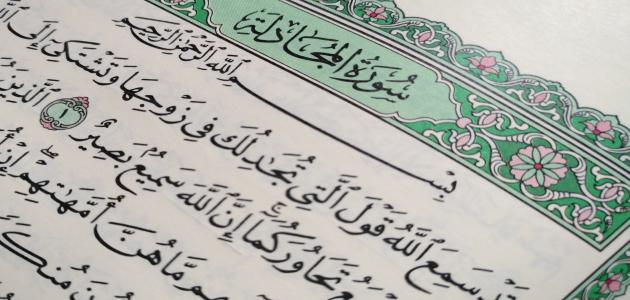 سُورَةُ المُجَادلَة
بِسْمِ ٱللَّهِ ٱلرَّحْمَٰنِ ٱلرَّحِيمِ
سَمِعَ ٱللَّهُ قَوْلَ ٱلَّتِى تُجَٰدِلُكَ فِى زَوْجِهَا وَتَشْتَكِىٓ إِلَى
تَحَاوُرَكُمَآ إِنَّ ٱللَّهَ سَمِيعٌۢ بَصِيرٌ ١ ٱلَّذِينَ
مَّا هُنَّ أُمَّهَٰتِهِمْ إِنْ